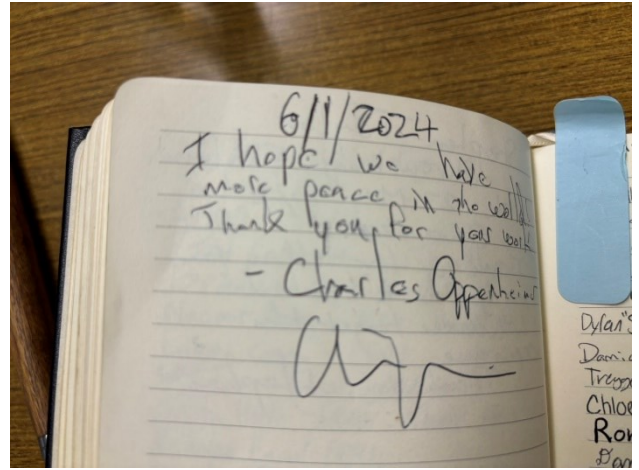 6/1/2024
I hope we have
more peace in the world
Thank you for your work
- Charles Oppenheimer
Dylan's
Chloe